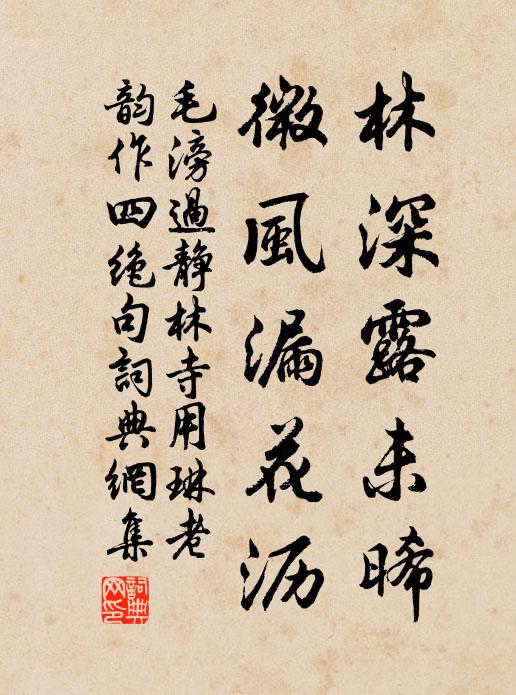 林深露未晞
微風漏花沥
毛滂過靜林寺用琳老
韵作四絶句詞典網集
詞典
网印